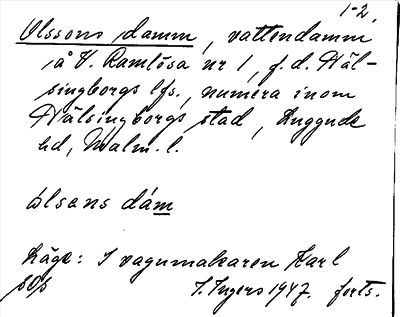 1-2.
Olssons damm, vattendamm
på V. Ramlösa nr 1, f.d. Häl-
singborgs lfs., numera inom
Hälsingborgs stad, Luggude
hd, Malm. l.
ólsons dám
Läge: I vagnmakaren Karl
S. Ingers 1947. forts.